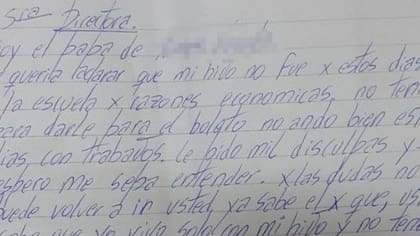 Sra Directora.
oy el papa de
queria aclarar que mi hijo no fue x estos dias
la escuela x razones economicas, no ten
para darle para el boleto no ando bien es
ias, con trabajos. Le pido mil disculpas y
espero me sepa entender. x las dudas no
puede volver a in usted ya sabe el x que, us
sabe que yo vivo solo con mi hijo y no ten